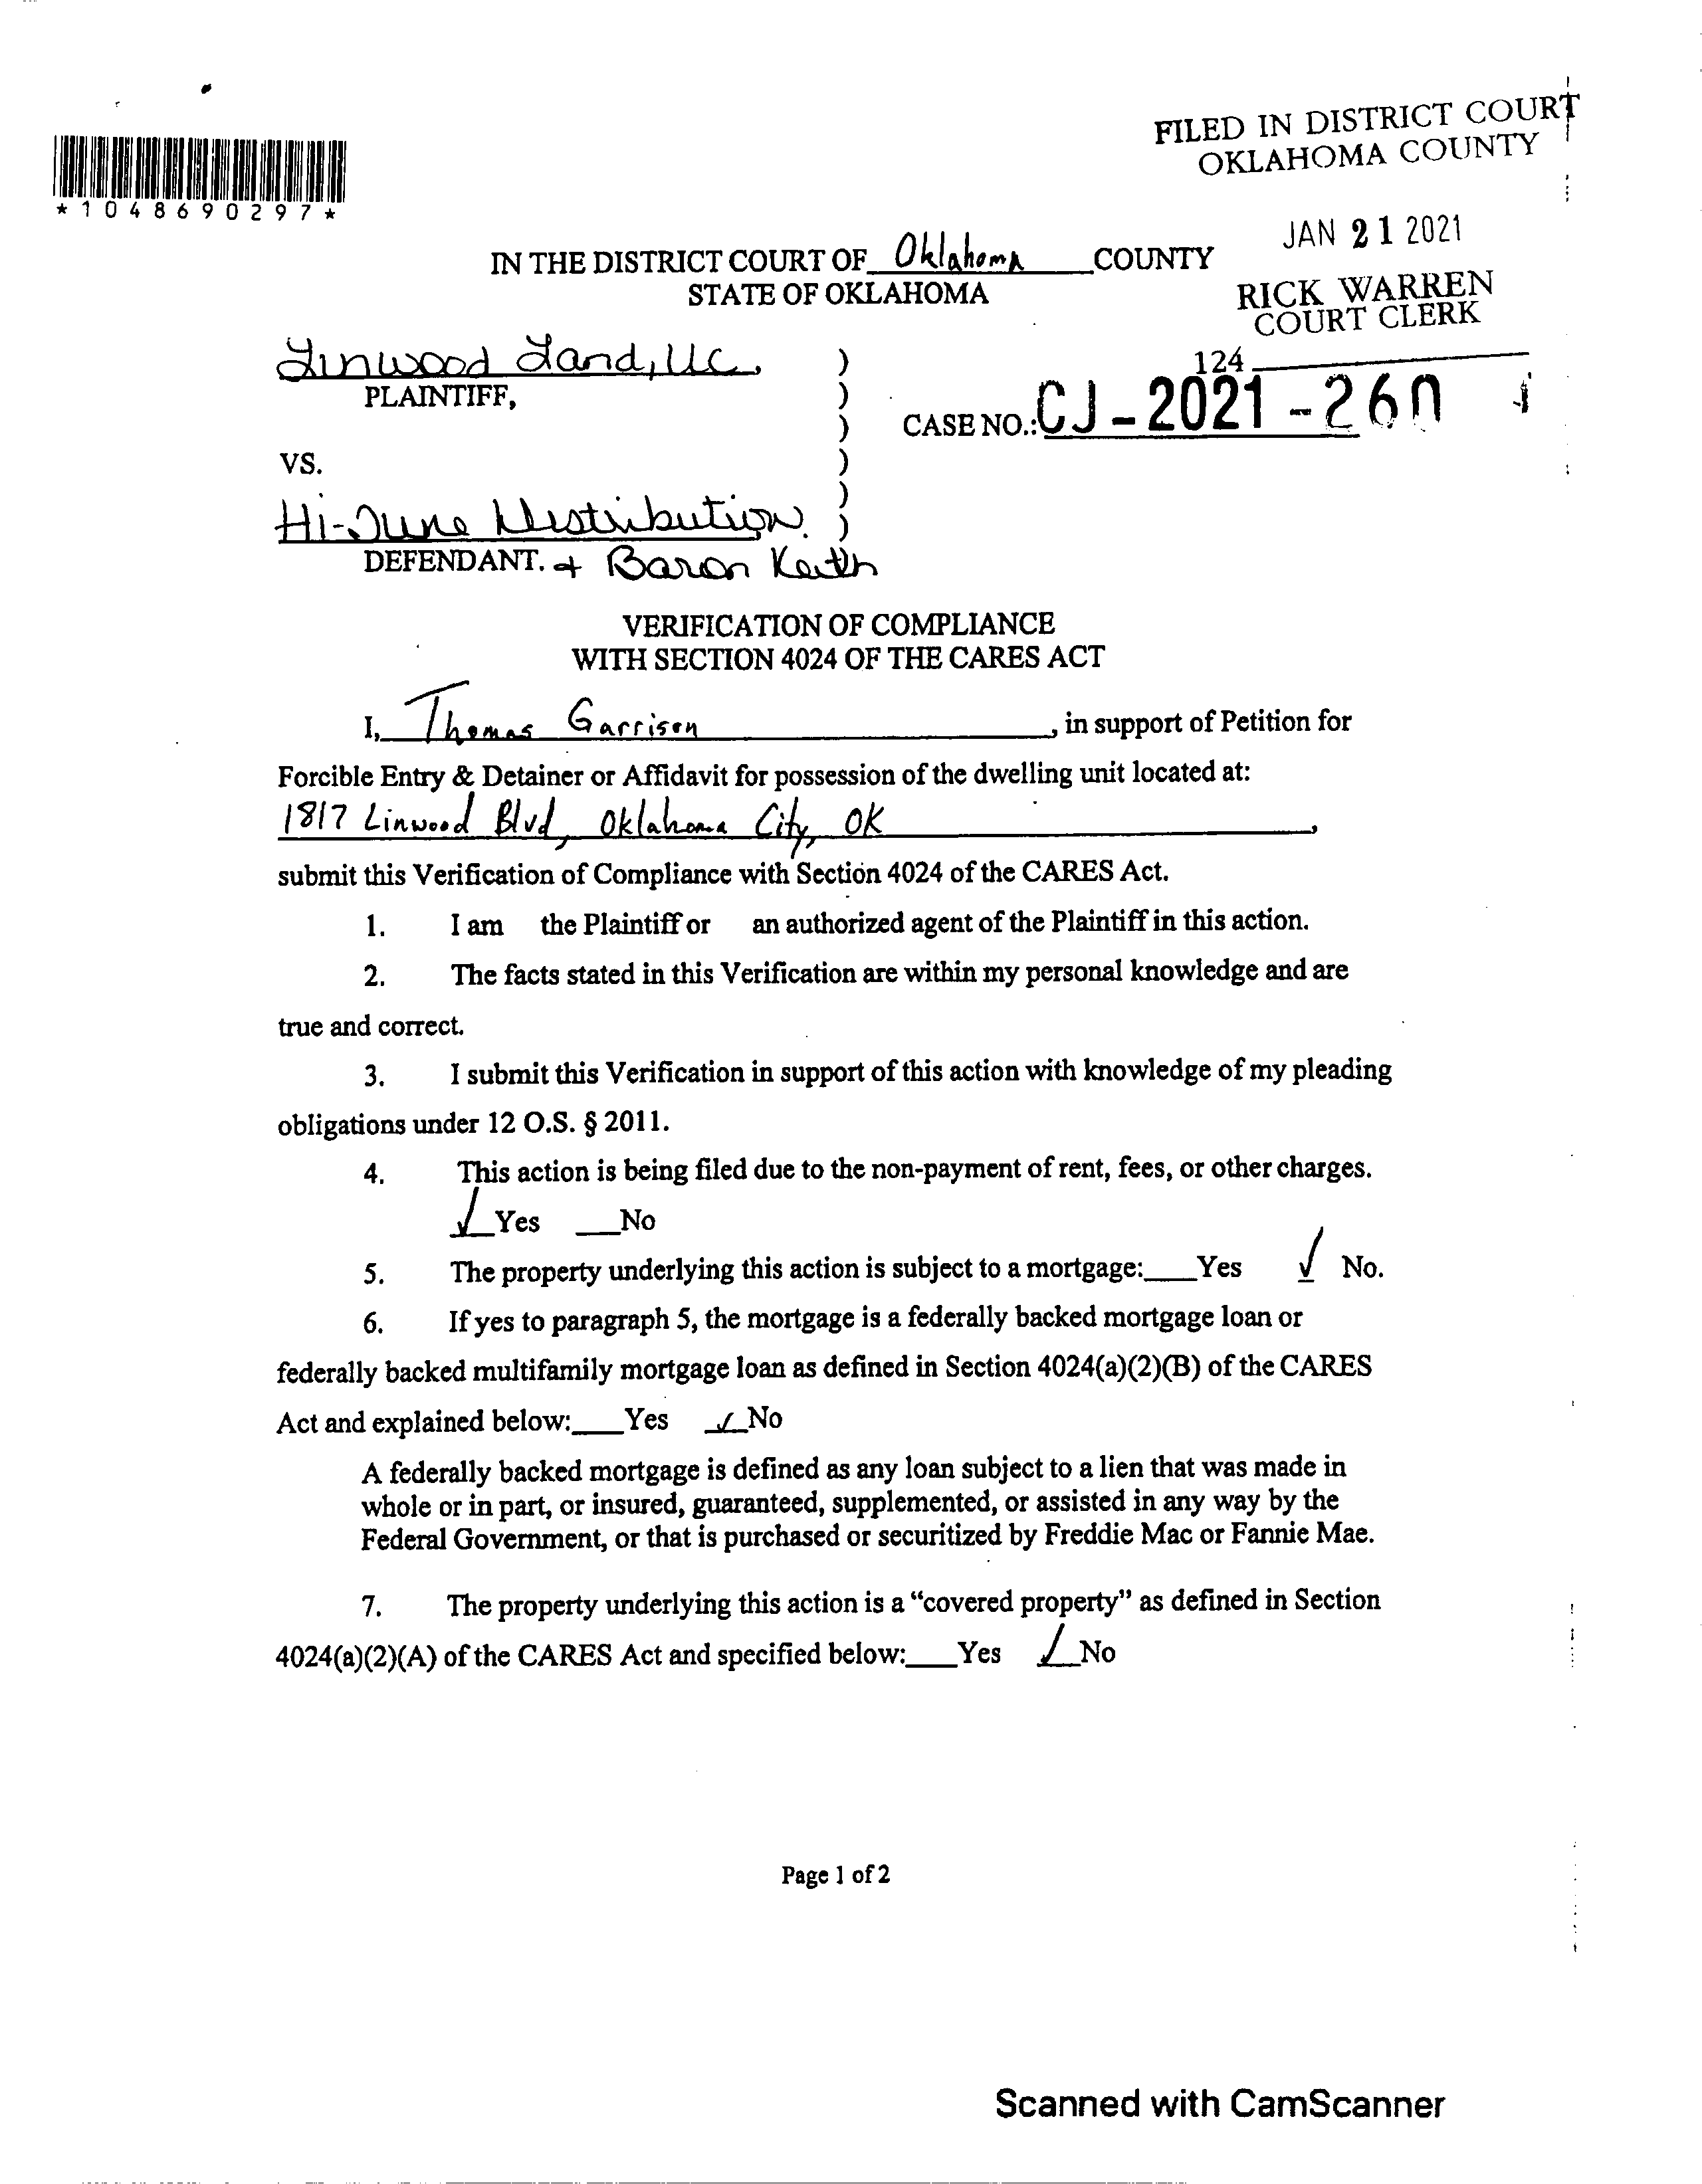 FILED IN DISTRICT COURT
OKLAHOMA COUNTY
*1048690297*
JAN 21 2021
IN THE DISTRICT COURT OF Oklahoma COUNTY
STATE OF OKLAHOMA
RICK WARREN
COURT CLERK
124
Linwood Land, LLC.
PLAINTIFF,
CASE NO.: CJ-2021-260
VS.
Hi-June Distribution.
DEFENDANT. + Baron Keith
VERIFICATION OF COMPLIANCE
WITH SECTION 4024 OF THE CARES ACT
I, Thomas Garrison, in support of Petition for
Forcible Entry & Detainer or Affidavit for possession of the dwelling unit located at:
1817 Linwood Blvd, Oklahoma City, OK,
submit this Verification of Compliance with Section 4024 of the CARES Act.
1. I am the Plaintiff or an authorized agent of the Plaintiff in this action.
2. The facts stated in this Verification are within my personal knowledge and are
true and correct.
3. I submit this Verification in support of this action with knowledge of my pleading
obligations under 12 O.S. § 2011.
4. This action is being filed due to the non-payment of rent, fees, or other charges.
✓ Yes ___No
5. The property underlying this action is subject to a mortgage:___Yes ✓ No.
6. If yes to paragraph 5, the mortgage is a federally backed mortgage loan or
federally backed multifamily mortgage loan as defined in Section 4024(a)(2)(B) of the CARES
Act and explained below:___Yes ✓ No
A federally backed mortgage is defined as any loan subject to a lien that was made in
whole or in part, or insured, guaranteed, supplemented, or assisted in any way by the
Federal Government, or that is purchased or securitized by Freddie Mac or Fannie Mae.
7. The property underlying this action is a “covered property” as defined in Section
4024(a)(2)(A) of the CARES Act and specified below:___Yes ✓ No
Page 1 of 2
Scanned with CamScanner